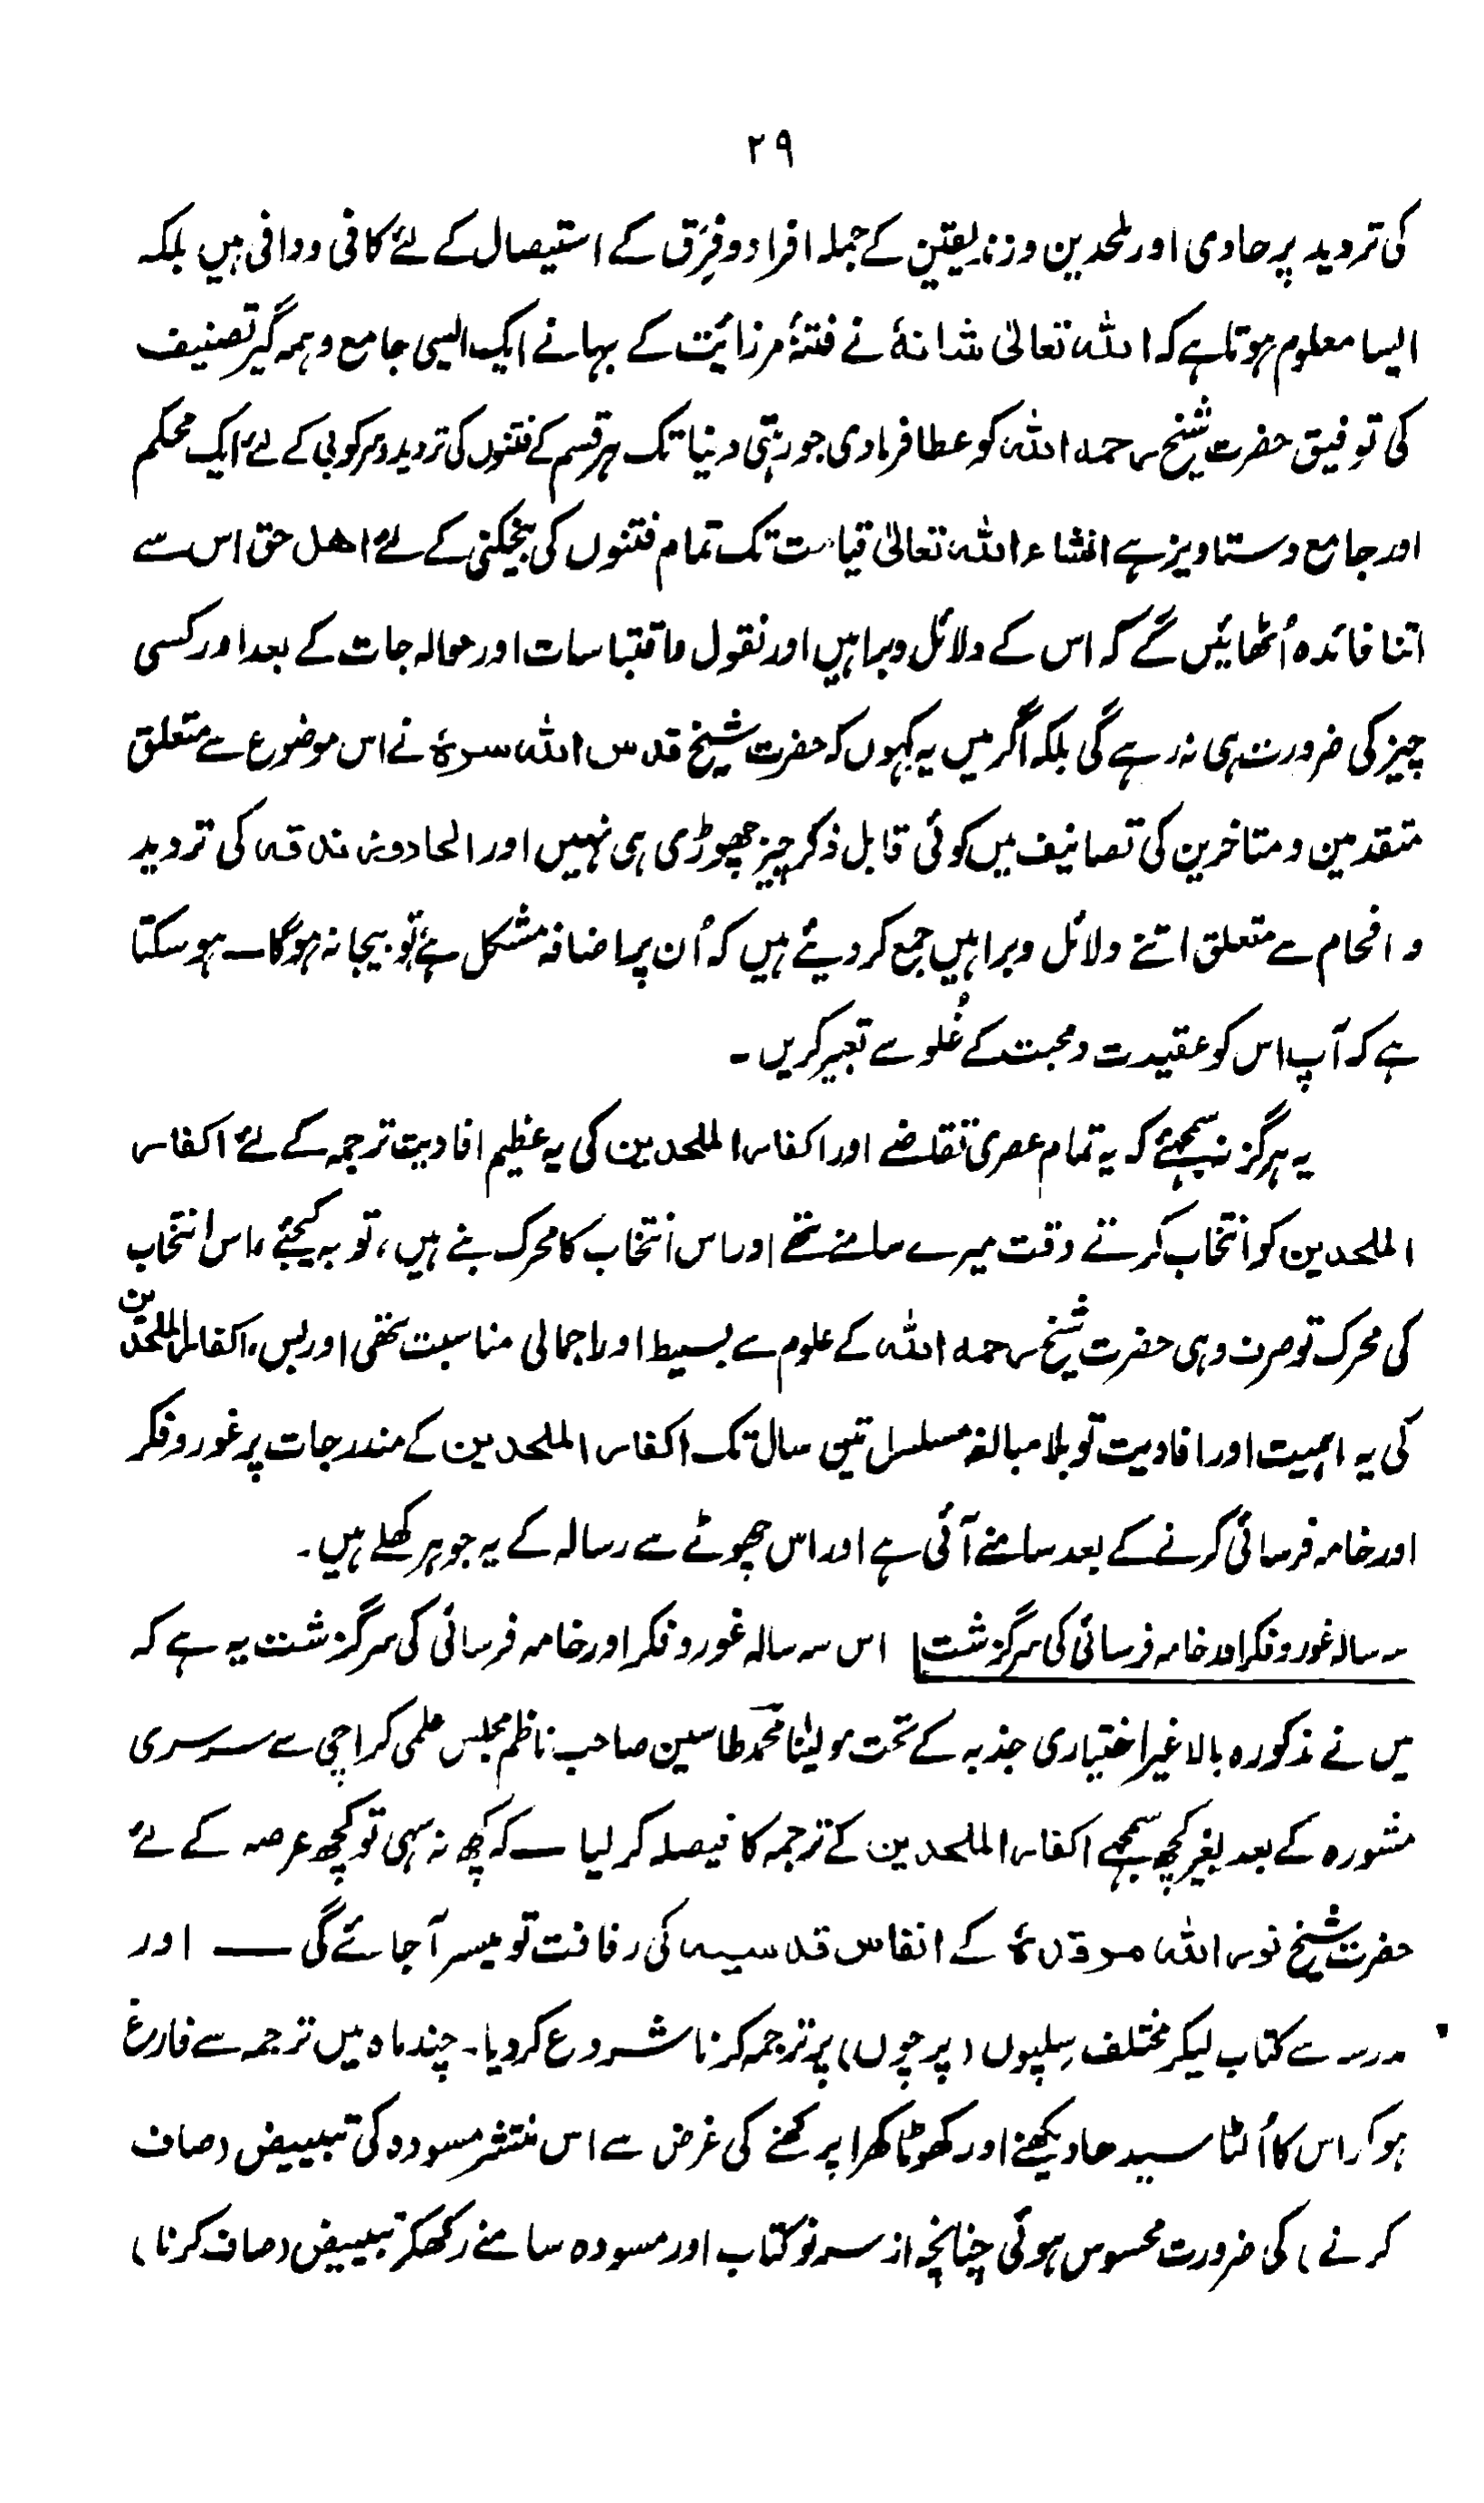 ۲۹
کی تردید پر حاوی اور ملحدین وزندیقین کے جملہ افراد وفِرَق کے استیصال کے لئے کافی ووافی ہیں بلکہ
ایسا معلوم ہوتا ہے کہ اللہ تعالیٰ شانہٗ نے فتنۂ مرزائیت کے بہانے ایک ایسی جامع وہمہ گیر تصنیف
کی توفیق حضرت شیخ رحمہ اللہ کو عطا فرمادی جو رہتی دنیا تک ہر قسم کے فتنوں کی تردید وسرکوبی کے لئے ایک محکم
اور جامع دستاویز ہے انشاء اللہ تعالیٰ قیامت تک تمام فتنوں کی بیخکنی کے لئے اھل حق اس سے
اتنا فائدہ اُٹھائیں گے کہ اس کے دلائل وبراہیں اور نقول واقتباسات اور حوالہ جات کے بعد اور کسی
چیز کی ضرورت ہی نہ رہے گی بلکہ اگر میں یہ کہوں کہ حضرت شیخ قدس اللہ سرہٗ نے اس موضوع سے متعلق
متقدمین و متاخرین کی تصانیف میں کوئی قابل ذکر چیز چھوڑی ہی نہیں اور الحاد وزندقہ کی تردید
و افحام سے متعلق اتنے دلائل وبراہیں جمع کر دیئے ہیں کہ اُن پر اضافہ مشکل ہے تو بیجا نہ ہوگا ــ ہو سکتا
ہے کہ آپ اس کو عقیدت ومحبت کے غُلو سے تعبیر کریں ۔
یہ ہرگز نہ سمجھئے کہ یہ تمام عصری تقاضے اور اکفار الملحدین کی یہ عظیم افادیت ترجمہ کے لئے اکفار
الملحدین کو انتخاب کرتے وقت میرے سامنے تھے اور اس انتخاب کا محرک بنے ہیں ، توبہ کیجئے ، اس انتخاب
کی محرک تو صرف وہی حضرت شیخ رحمہ اللہ کے علوم سے بسیط اور اجمالی مناسبت تھی اور بس ، اکفار الملحدین
کی یہ اہمیت اور افادیت تو بلا مبالغہ مسلسل تین سال تک اکفار الملحدین کے مندرجات پر غور وفکر
اور خامہ فرسائی کرنے کے بعد سامنے آئی ہے اور اس چھوٹے سے رسالہ کے یہ جوہر کھلے ہیں ۔
سہ سالہ غور وفکر اور خامہ فرسائی کی سرگزشت اس سہ سالہ غور وفکر اور خامہ فرسائی کی سرگزشت یہ ہے کہ
میں نے مذکورہ بالا غیر اختیاری جذبہ کے تحت مولیٰنا محمد طاسین صاحب ناظم مجلس علمی کراچی سے سرسری
مشورہ کے بعد بغیر کچھ سمجھے اکفار الملحدین کے ترجمہ کا فیصلہ کر لیا ــ کہ کچھ نہ سہی تو کچھ عرصہ کے لئے
حضرت شیخ نور اللہ مرقدہٗ کے انفاس قدسیہ کی رفاقت تو میسر آجائے گی ــ اور
مدرسہ سے کتاب لیکر مختلف سِلپوں (پرچوں) پر ترجمہ کرنا شروع کردیا ۔ چند ماہ میں ترجمہ سے فارغ
ہو کر اس کا اُلٹا سیدھا دیکھنے اور کھوٹا کھرا پرکھنے کی غرض سے اس منتشر مسودہ کی تبییض (صاف
کرنے) کی ضرورت محسوس ہوئی چنانچہ از سرنو کتاب اور مسودہ سامنے رکھکر تبییض (صاف کرنا)